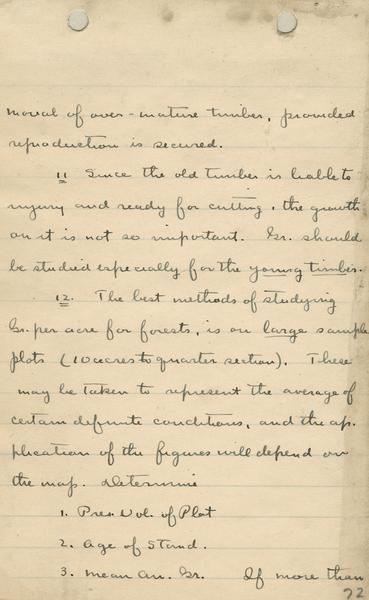 moval of over-mature timber, provided
reproduction is secured.
11 Since the old timber is liable to
injury and ready for cutting, the growth
on it is not so important. Gr. should
be studied especially for the young timber.
12. The best methods of studying
Gr. per acre for forests, is on large sample
plots (10 acres to quarter section). These
may be taken to represent the average of
certain definite conditions, and the ap-
plication of the figures will depend on
the map. Determine
1. Pres. Vol. of Plat
2. Age of Stand.
3. Mean An. Gr. If more than
72